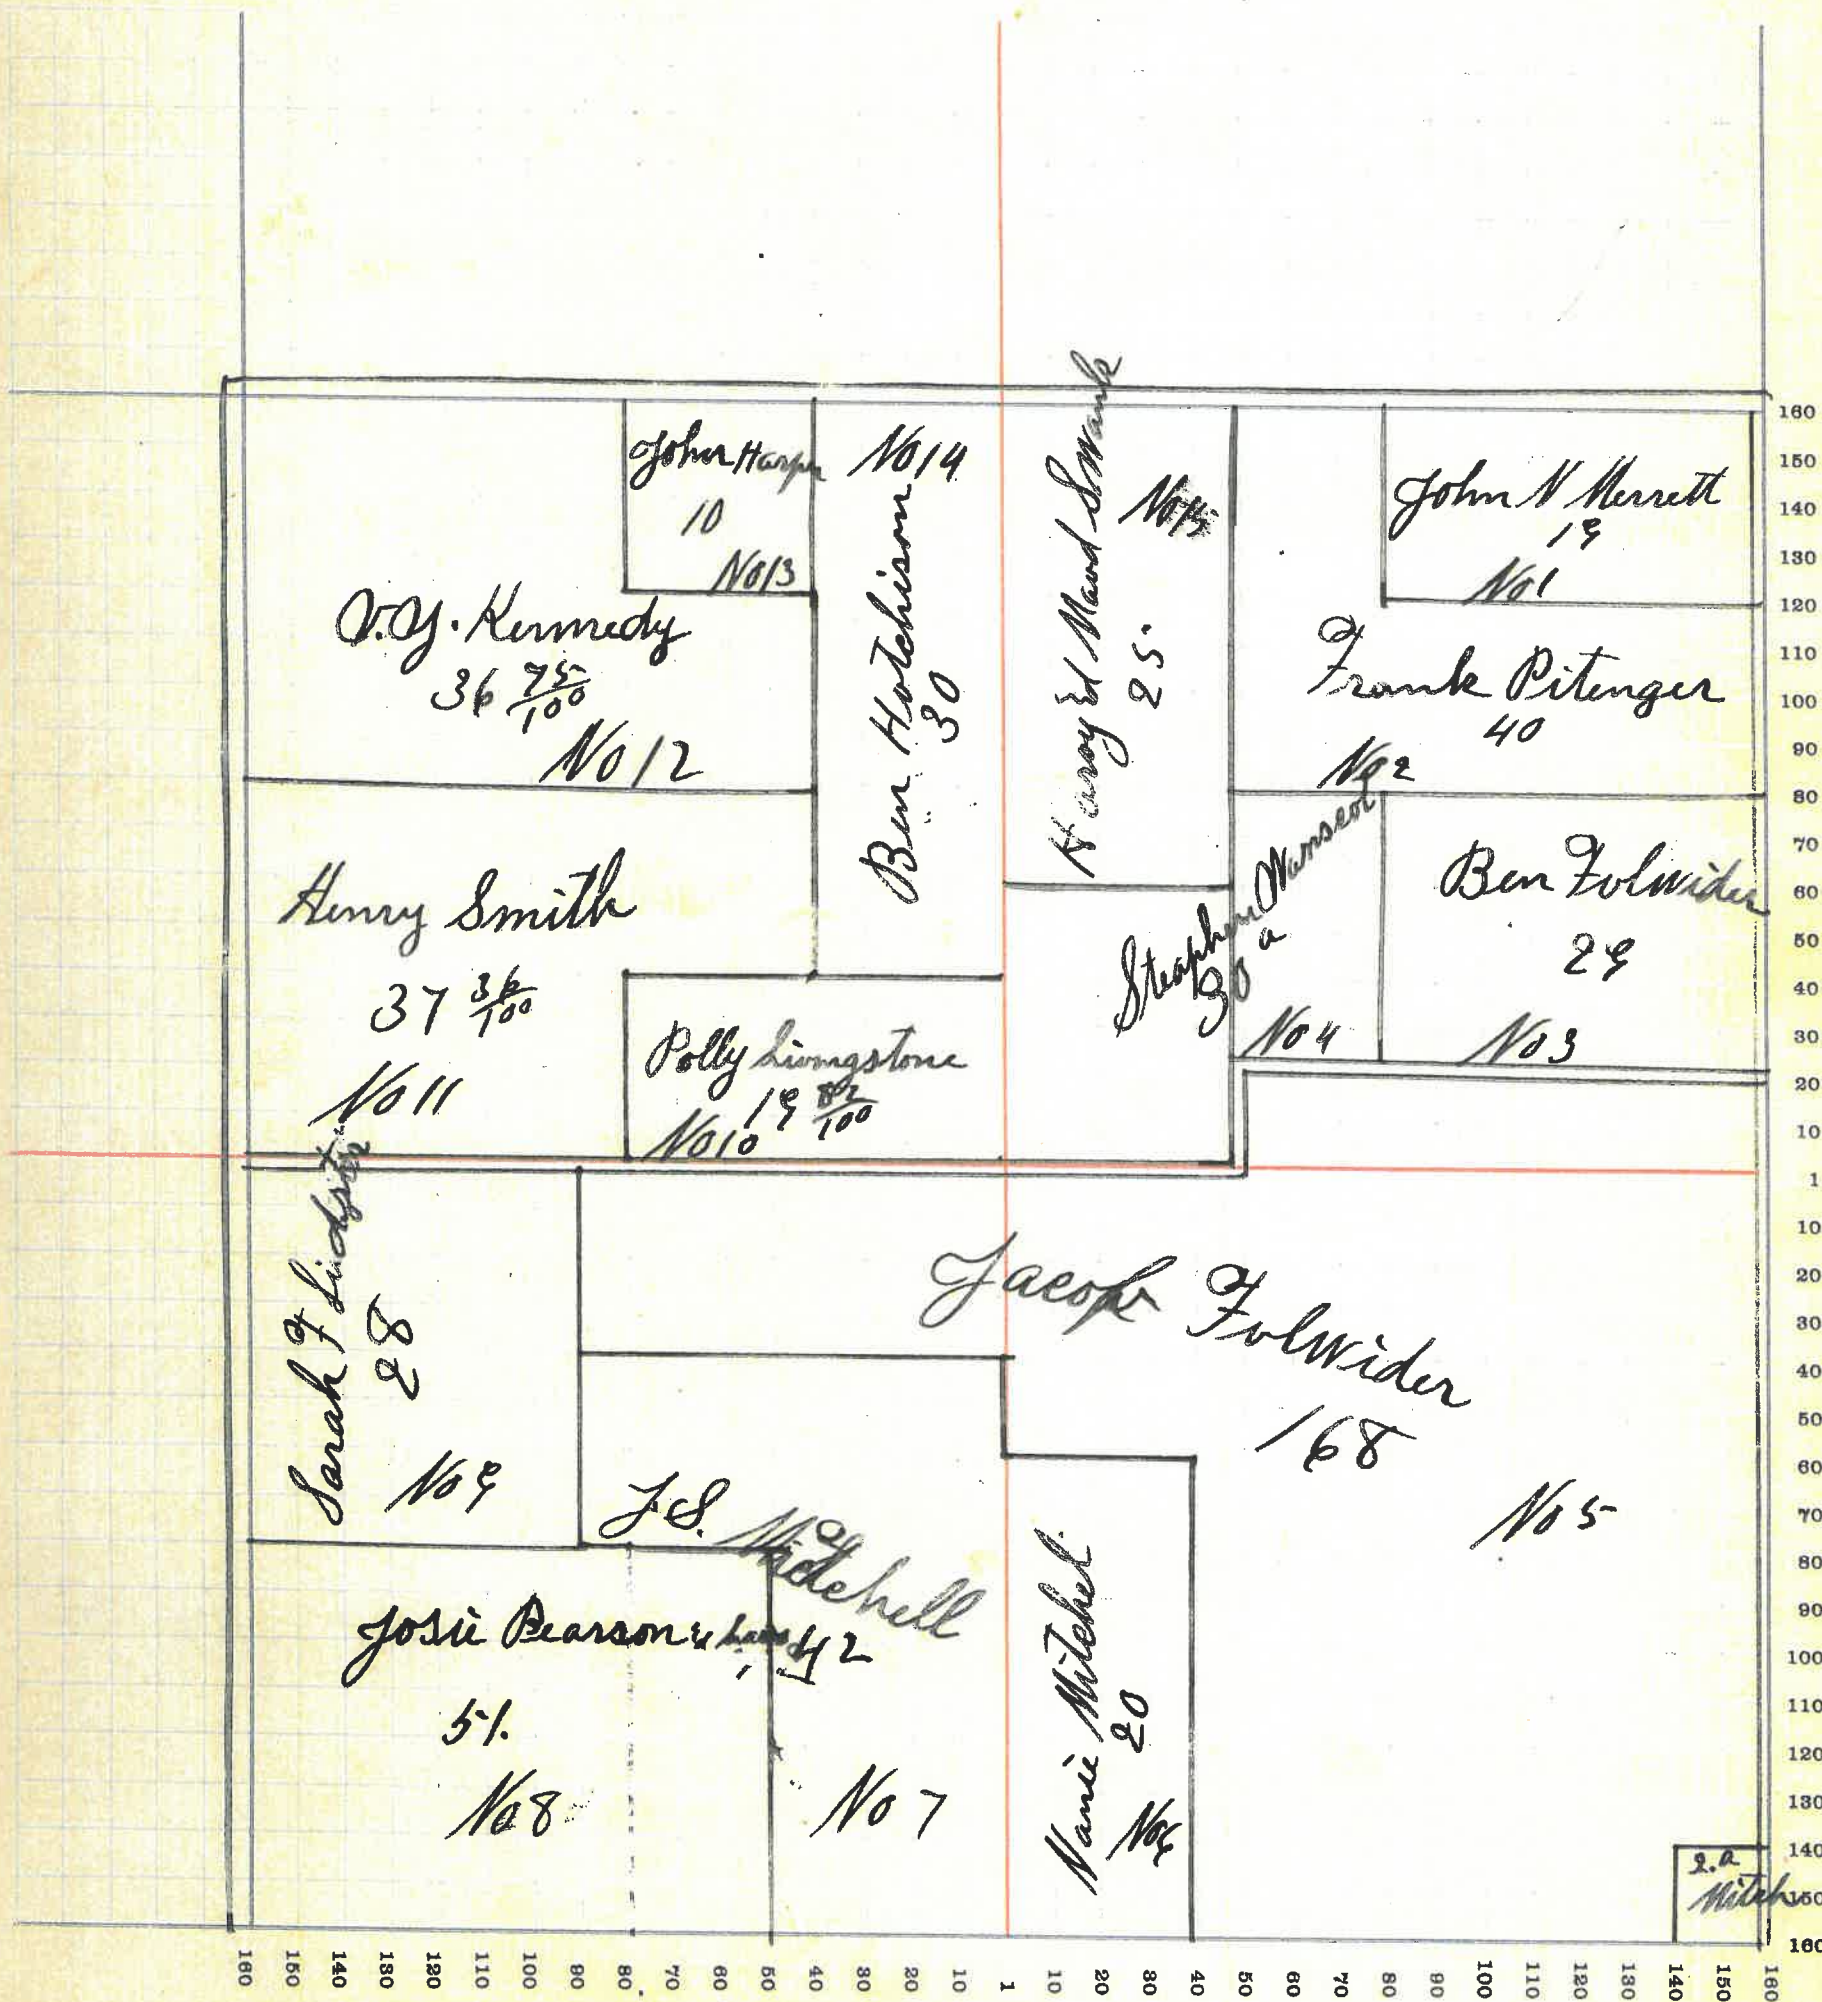 John Harper
10
No 13
No 14
Ben Hotchison
30
No 15
25
John N Merrett
19
No 1
V.Y. Kennedy
36 75/100
No 12
Frank Pitenger
40
No 2
Henry Smith
37 36/100
No 11
Polly Livingstone
19 82/100
No 10
Steaphen
30 a
No 4
Ben Folwider
29
No 3
Sarah F
28
No 9
Jacob Folwider
168
No 5
J.S. Mitchell
42
No 7
Josie Pearson
51.
No 8
Nanie Mitchel
20
No 6
2.a
Mitch
160
150
140
130
120
110
100
90
80
70
60
50
40
30
20
10
1
10
20
30
40
50
60
70
80
90
100
110
120
130
140
150
160
160 150 140 130 120 110 100 90 80 70 60 50 40 30 20 10 1 10 20 30 40 50 60 70 80 90 100 110 120 130 140 150 160